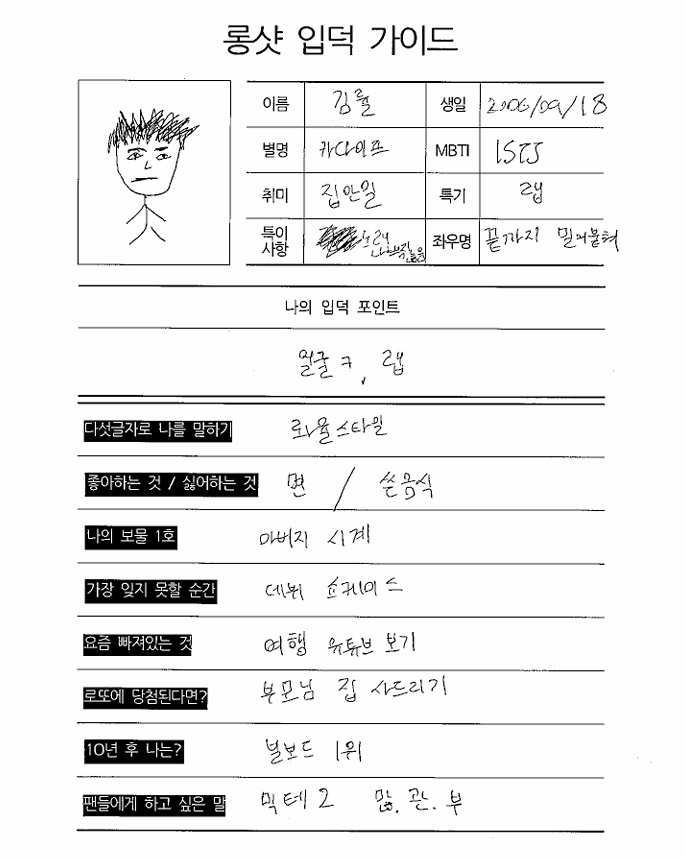 롱샷 입덕 가이드
이름 김률 생일 2006/09/18
별명 카다이프 MBTI ISTJ
취미 집안일 특기 랩
특이사항 좌우명 끝까지 밀어붙여
나의 입덕 포인트
얼굴 ㅋ, 랩
다섯글자로 나를 말하기 롸율스타일
좋아하는 것 / 싫어하는 것 면 / 쓴음식
나의 보물 1호 아버지 시계
가장 잊지 못할 순간 데뷔 쇼케이스
요즘 빠져있는 것 여행 유튜브 보기
로또에 당첨된다면? 부모님 집 사드리기
10년 후 나는? 빌보드 1위
팬들에게 하고 싶은 말 믹테2 많.관.부